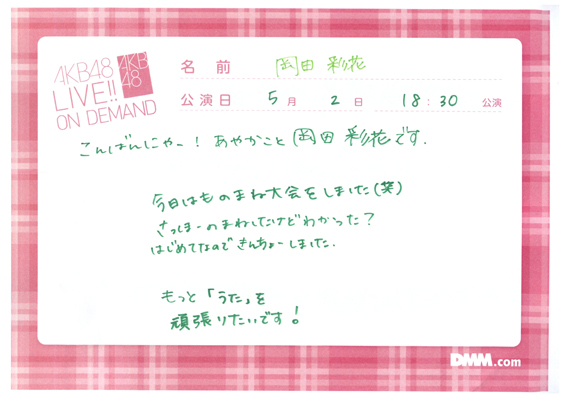 AKB48
LIVE!!
ON DEMAND
AKB
48
名前 岡田彩花
公演日 5月2日 18:30公演
こんばんにゃー！あやかこと岡田彩花です.
今日はものまね大会をしました(笑)
さっしほーのまねしたけどわかった？
はじめてなのできんちょーしました.
もっと「うた」を
頑張りたいです！
DMM.com